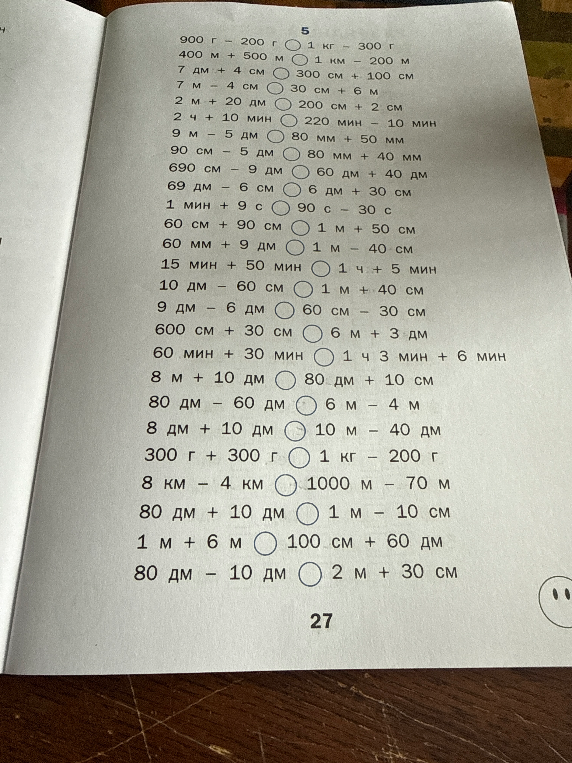 5
900 г – 200 г ◯ 1 кг – 300 г
400 м + 500 м ◯ 1 км – 200 м
7 дм + 4 см ◯ 300 см + 100 см
7 м – 4 см ◯ 30 см + 6 м
2 м + 20 дм ◯ 200 см + 2 см
2 ч + 10 мин ◯ 220 мин – 10 мин
9 м – 5 дм ◯ 80 мм + 50 мм
90 см – 5 дм ◯ 80 мм + 40 мм
690 см – 9 дм ◯ 60 дм + 40 дм
69 дм – 6 см ◯ 6 дм + 30 см
1 мин + 9 с ◯ 90 с – 30 с
60 см + 90 см ◯ 1 м + 50 см
60 мм + 9 дм ◯ 1 м – 40 см
15 мин + 50 мин ◯ 1 ч + 5 мин
10 дм – 60 см ◯ 1 м + 40 см
9 дм – 6 дм ◯ 60 см – 30 см
600 см + 30 см ◯ 6 м + 3 дм
60 мин + 30 мин ◯ 1 ч 3 мин + 6 мин
8 м + 10 дм ◯ 80 дм + 10 см
80 дм – 60 дм ◯ 6 м – 4 м
8 дм + 10 дм ◯ 10 м – 40 дм
300 г + 300 г ◯ 1 кг – 200 г
8 км – 4 км ◯ 1000 м – 70 м
80 дм + 10 дм ◯ 1 м – 10 см
1 м + 6 м ◯ 100 см + 60 дм
80 дм – 10 дм ◯ 2 м + 30 см
27